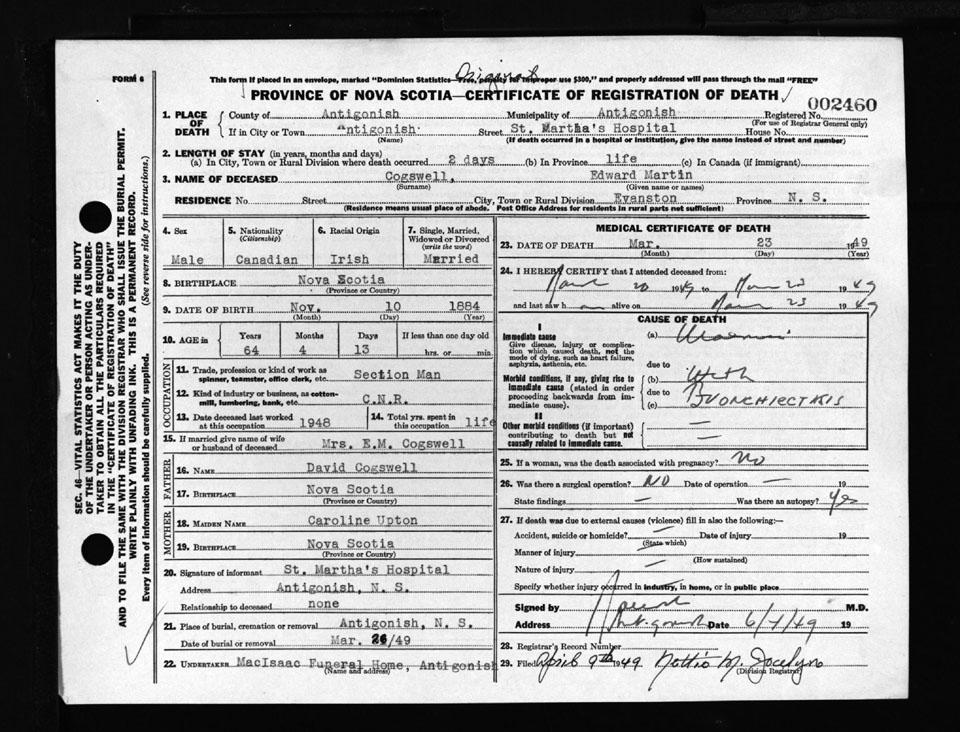 FORM 6
Original
This form if placed in an envelope, marked "Dominion Statistics—Free, penalty for improper use $300," and properly addressed will pass through the mail "FREE"
PROVINCE OF NOVA SCOTIA—CERTIFICATE OF REGISTRATION OF DEATH
002460
1. PLACE OF DEATH { County of Antigonish Municipality of Antigonish Registered No.
(For use of Registrar General only)
If in City or Town Antigonish Street St. Martha's Hospital House No.
(Name) (If death occurred in a hospital or institution, give the name instead of street and number)
2. LENGTH OF STAY (in years, months and days)
(a) In City, Town or Rural Division where death occurred 2 days (b) In Province life (c) In Canada (if immigrant)
3. NAME OF DECEASED Cogswell, Edward Martin
(Surname) (Given name or names)
RESIDENCE No. Street City, Town or Rural Division Evanston Province N. S.
(Residence means usual place of abode. Post Office Address for residents in rural parts not sufficient)
4. Sex 5. Nationality (Citizenship) 6. Racial Origin 7. Single, Married, Widowed or Divorced (write the word)
Male Canadian Irish Married
8. BIRTHPLACE Nova Scotia
(Province or Country)
9. DATE OF BIRTH Nov. 10 1884
(Month) (Day) (Year)
10. AGE in Years Months Days If less than one day old
64 4 13 hrs. or min.
OCCUPATION
11. Trade, profession or kind of work as spinner, teamster, office clerk, etc. Section Man
12. Kind of industry or business, as cotton-mill, lumbering, bank, etc. C.N.R.
13. Date deceased last worked at this occupation 1948 14. Total yrs. spent in this occupation life
15. If married give name of wife or husband of deceased Mrs. E.M. Cogswell
FATHER
16. NAME David Cogswell
17. BIRTHPLACE Nova Scotia
(Province or Country)
MOTHER
18. MAIDEN NAME Caroline Upton
19. BIRTHPLACE Nova Scotia
(Province or Country)
20. Signature of informant St. Martha's Hospital
Address Antigonish, N. S.
Relationship to deceased none
21. Place of burial, cremation or removal Antigonish, N. S.
Date of burial or removal Mar. 26/49
22. UNDERTAKER MacIsaac Funeral Home, Antigonish
(Name and address)
MEDICAL CERTIFICATE OF DEATH
23. DATE OF DEATH Mar. 23 1949
(Month) (Day) (Year)
24. I HEREBY CERTIFY that I attended deceased from:
March 20 1949 to March 23 1949
and last saw h alive on March 23 1949
CAUSE OF DEATH
I
Immediate cause (a) Uraemia
Give disease, injury or complication which caused death, not the mode of dying, such as heart failure, asphyxia, asthenia, etc.
due to
Morbid conditions, if any, giving rise to immediate cause (stated in order proceeding backwards from immediate cause).
(b) With
due to
(c) Bronchiectasis
II
Other morbid conditions (if important) contributing to death but not causally related to immediate cause.
25. If a woman, was the death associated with pregnancy? No
26. Was there a surgical operation? NO Date of operation — 19
State findings — Was there an autopsy? Yes
27. If death was due to external causes (violence) fill in also the following:—
Accident, suicide or homicide? — Date of injury 19
(State which)
Manner of injury
(How sustained)
Nature of injury —
Specify whether injury occurred in industry, in home, or in public place
Signed by M.D.
Address Antigonish Date 6/4/49 19
28. Registrar's Record Number
29. Filed April 9th 1949 Nettie M. Jocelyn
(Division Registrar)
SEC. 46—VITAL STATISTICS ACT MAKES IT THE DUTY
OF THE UNDERTAKER OR PERSON ACTING AS UNDER-
TAKER TO OBTAIN ALL THE PARTICULARS REQUIRED
IN THE "CERTIFICATE OF REGISTRATION OF DEATH"
AND TO FILE THE SAME WITH THE DIVISION REGISTRAR WHO SHALL ISSUE THE BURIAL PERMIT.
WRITE PLAINLY WITH UNFADING INK. THIS IS A PERMANENT RECORD.
Every item of information should be carefully supplied. (See reverse side for instructions.)